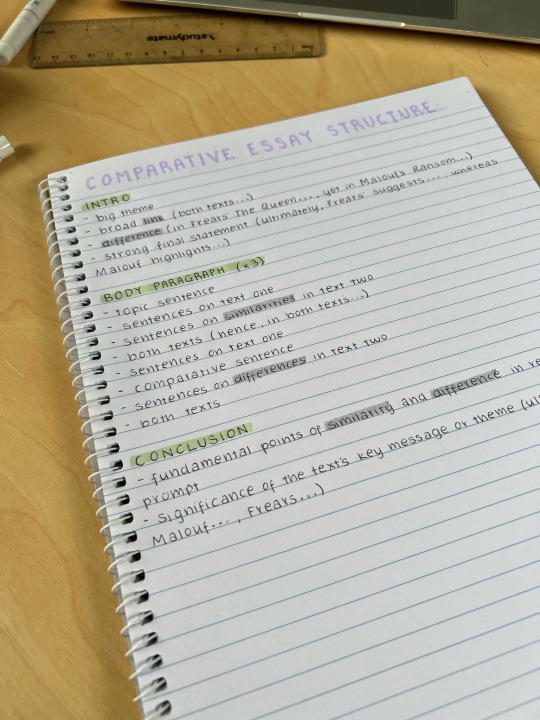 studymate
COMPARATIVE ESSAY STRUCTURE
INTRO
- big theme
- broad link (both texts...)
- difference (in Frears' The Queen..., yet in Malouf's Ransom...)
- strong final statement (ultimately, Frears suggests... whereas
Malouf highlights...)
BODY PARAGRAPH (x3)
- topic sentence
- sentences on text one
- sentences on similarities in text two
- both texts (hence, in both texts...)
- sentences on text one
- comparative sentence
- sentences on differences in text two
- both texts
CONCLUSION
- fundamental points of similarity and difference in
prompt
- significance of the text's key message or theme
Malouf..., Frears...)